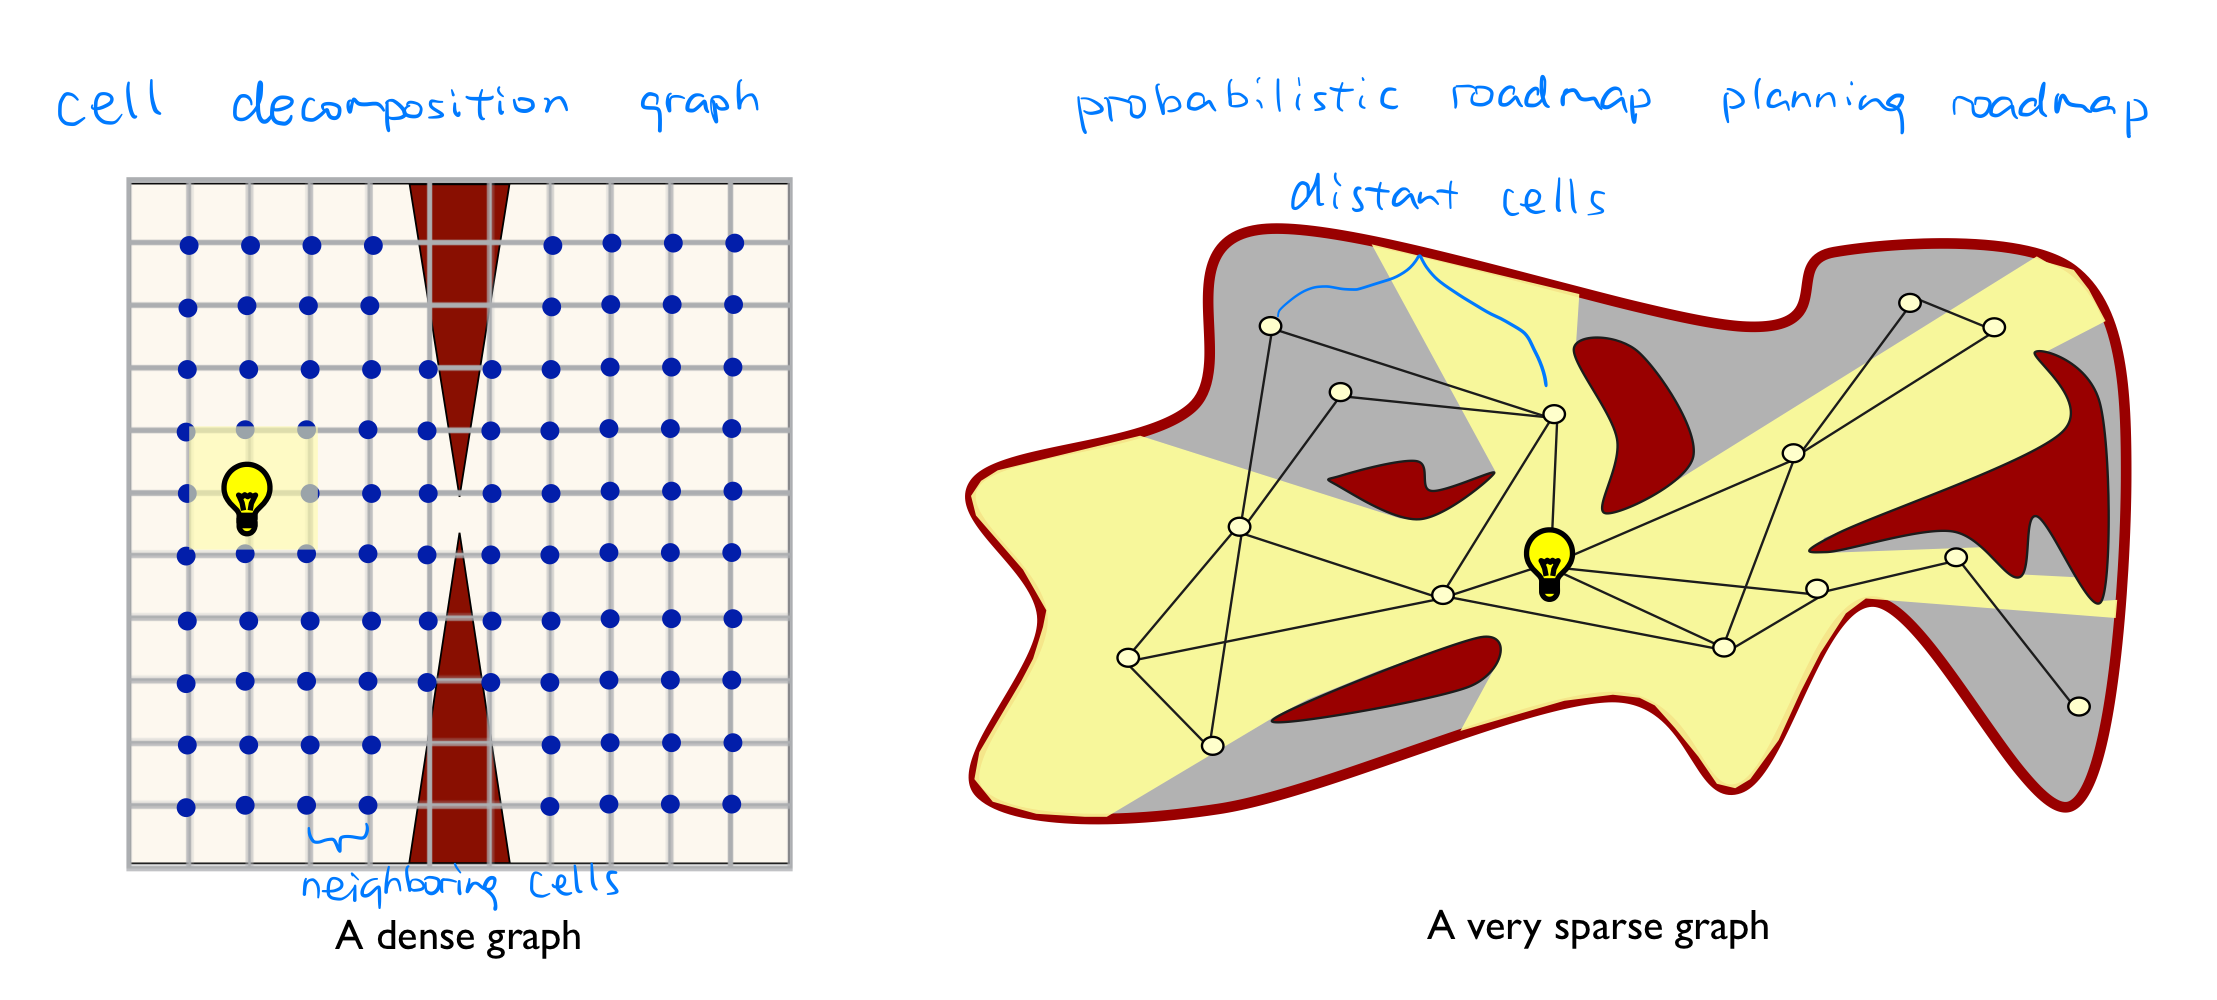 cell decomposition graph
neighboring cells
A dense graph
probabilistic roadmap planning roadmap
distant cells
A very sparse graph